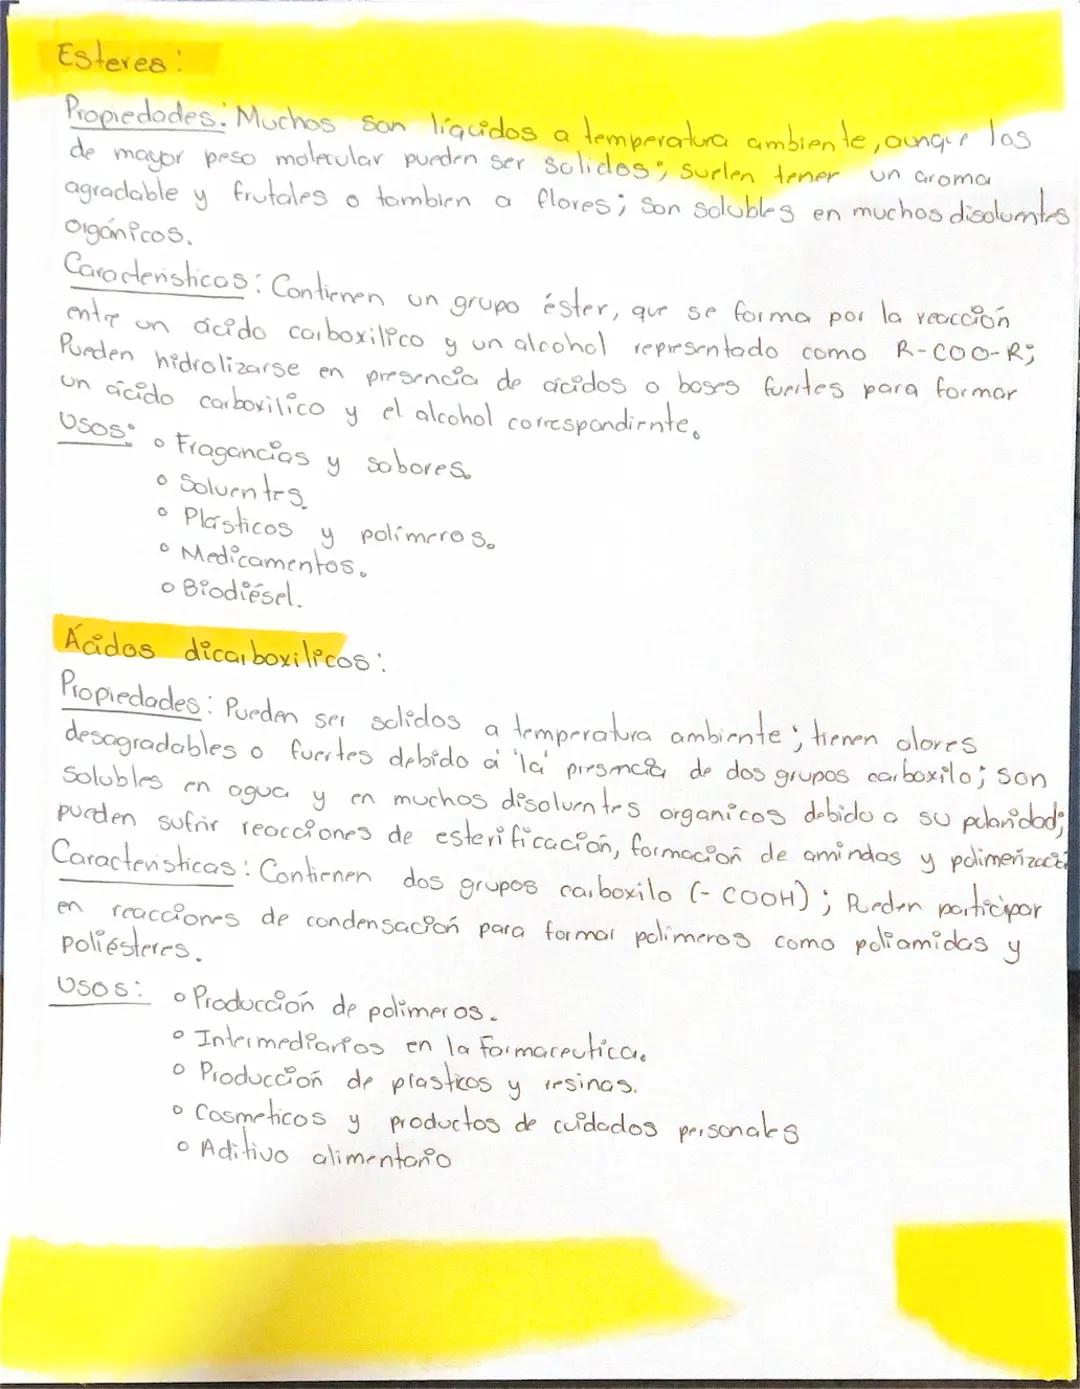 Esteres:
Propiedades: Muchos son líquidos a temperatura ambiente, aunque los
de mayor peso molecular pueden ser solidos; suelen tener un aroma
agradable y frutales o tambien a flores; son solubles en muchos disolventes
orgánicos.
Caracteristicas: Contienen un grupo éster, que se forma por la reacción
entre un ácido carboxilico y un alcohol representado como R-COO-R;
Pueden hidrolizarse en presencia de ácidos o bases fuertes para formar
un ácido carboxilico y el alcohol correspondiente.
Usos: o Fragancias y sabores.
o Solventes.
o Plásticos y polimeros.
o Medicamentos.
o Biodiésel.
Ácidos dicarboxilicos:
Propiedades: Pueden ser solidos a temperatura ambiente; tienen olores
desagradables o fuertes debido a la presencia de dos grupos carboxilo; son
solubles en agua y en muchos disolventes organicos debido a su polaridad;
pueden sufrir reacciones de esterificación, formación de amindas y polimerizaci
Caracteristicas: Contienen dos grupos carboxilo (-COOH); Pueden participar
en reacciones de condensación para formar polimeros como poliamidas y
poliésteres.
Usos: o Producción de polimeros.
o Intermediarios en la farmaceutica.
o Producción de plasticos y resinas.
o Cosmeticos y productos de cuidados personales
o Aditivo alimentario